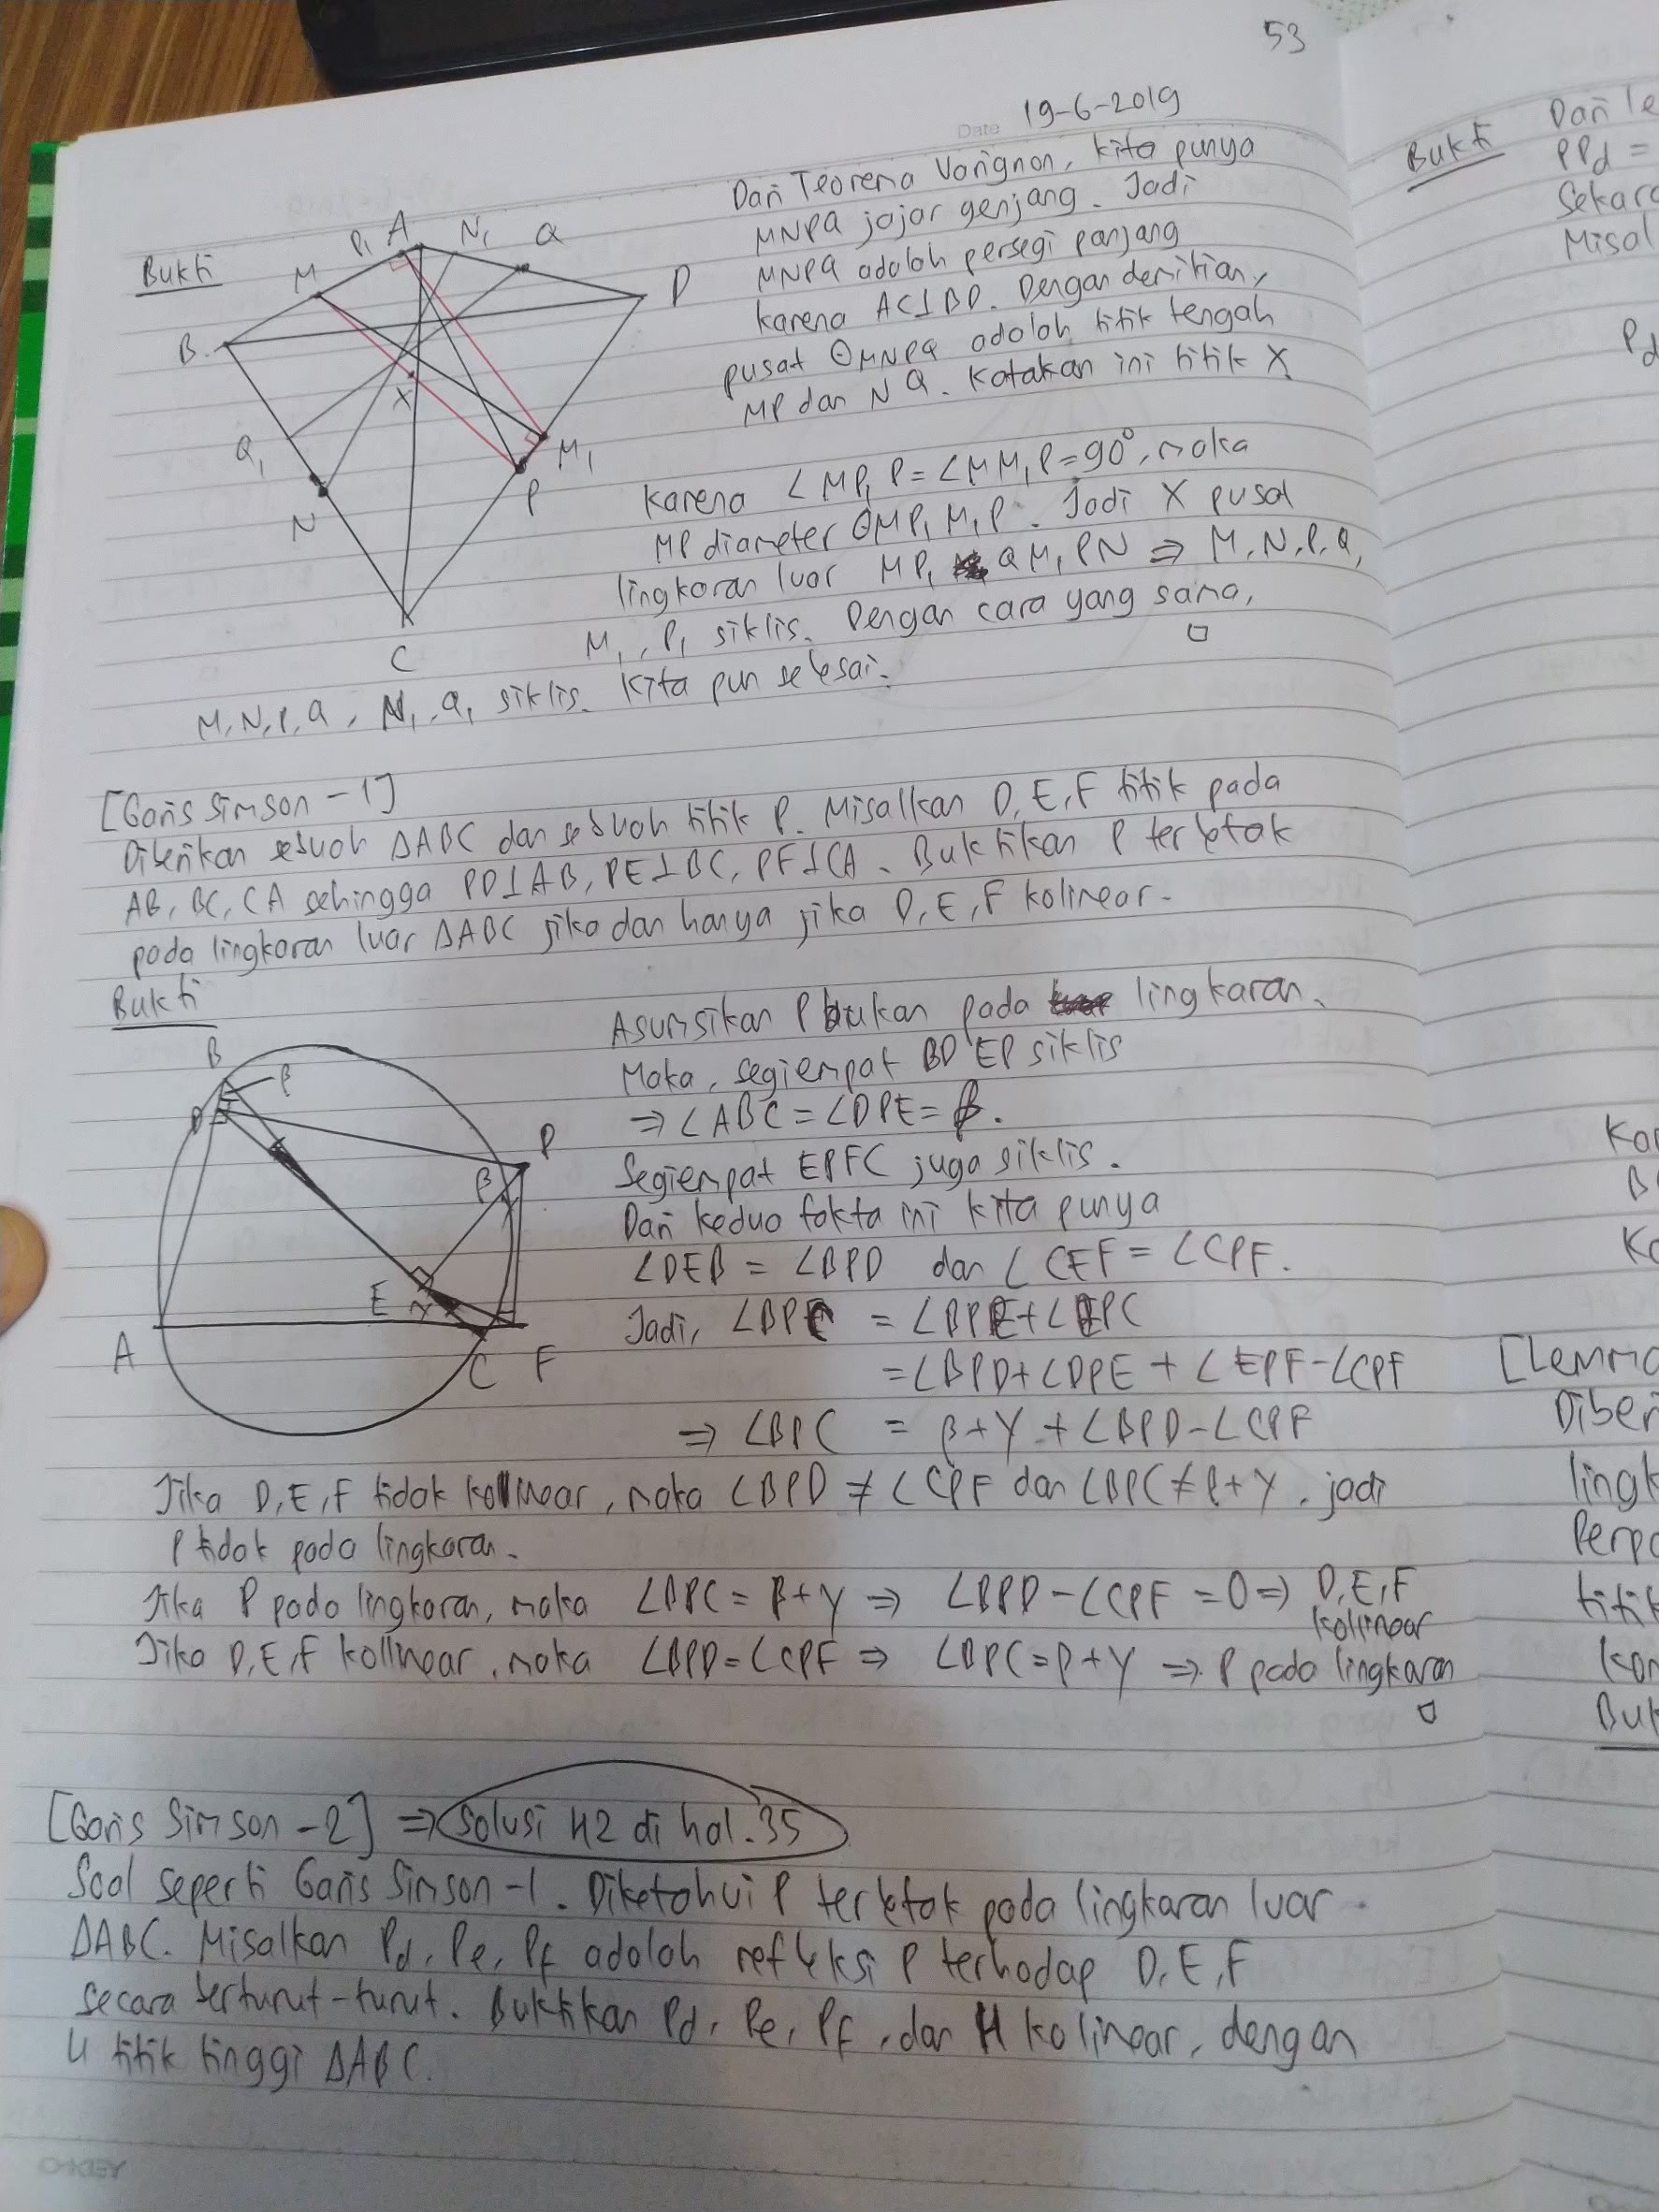 53
Date 19-6-2019
Bukti
Dari Teorema Varignon, kita punya
MNPQ jajar genjang. Jadi
MNPQ adalah persegi panjang
karena AC⊥BD. Dengan demikian,
pusat ⊙MNPQ adalah titik tengah
MP dan NQ. Katakan ini titik X.
P₁ A N₁ Q
M
D
B
X
Q₁
M₁
P
N
C
Karena ∠MP₁P = ∠MM₁P = 90°, maka
MP diameter ⊙MP₁M₁P. Jadi X pusat
lingkaran luar MP₁QM₁PN ⇒ M,N,P,Q,
M₁, P₁ siklis. Dengan cara yang sama,
M,N,P,Q, N₁, Q₁ siklis. Kita pun selesai. □
[Garis Simson - 1]
Diberikan sebuah ΔABC dan sebuah titik P. Misalkan D, E, F titik pada
AB, BC, CA sehingga PD⊥AB, PE⊥BC, PF⊥CA. Buktikan P terletak
pada lingkaran luar ΔABC jika dan hanya jika D, E, F kolinear.
Bukti
B
β
D
P
β
E
γ
A
C F
Asumsikan P bukan pada lingkaran.
Maka, segiempat BDEP siklis
⇒ ∠ABC = ∠DPE = β.
Segiempat EPFC juga siklis.
Dari kedua fakta ini kita punya
∠DEB = ∠BPD dan ∠CEF = ∠CPF.
Jadi, ∠BPC = ∠BPE+∠EPC
= ∠BPD+∠DPE + ∠EPF-∠CPF
⇒ ∠BPC = β+γ + ∠BPD-∠CPF
Jika D,E,F tidak kollinear, maka ∠BPD ≠ ∠CPF dan ∠BPC≠β+γ. jadi
P tidak pada lingkaran.
Jika P pada lingkaran, maka ∠BPC = β+γ ⇒ ∠BPD - ∠CPF = 0 ⇒ D,E,F
kollinear
Jika D,E,F kollinear, maka ∠BPD = ∠CPF ⇒ ∠BPC = β+γ ⇒ P pada lingkaran
□
[Garis Simson - 2] ⇒ Solusi H2 di hal. 35
Soal seperti Garis Simson-1. Diketahui P terletak pada lingkaran luar
ΔABC. Misalkan Pd, Pe, Pf adalah refleksi P terhadap D, E, F
secara berturut-turut. Buktikan Pd, Pe, Pf, dan H kolinear, dengan
H titik tinggi ΔABC.
Bukti
Dari
PPd =
Sekara
Misal
Pd
Ka
B
Ko
[Lemma
Diber
lingk
Perpa
titik
kon
Buk